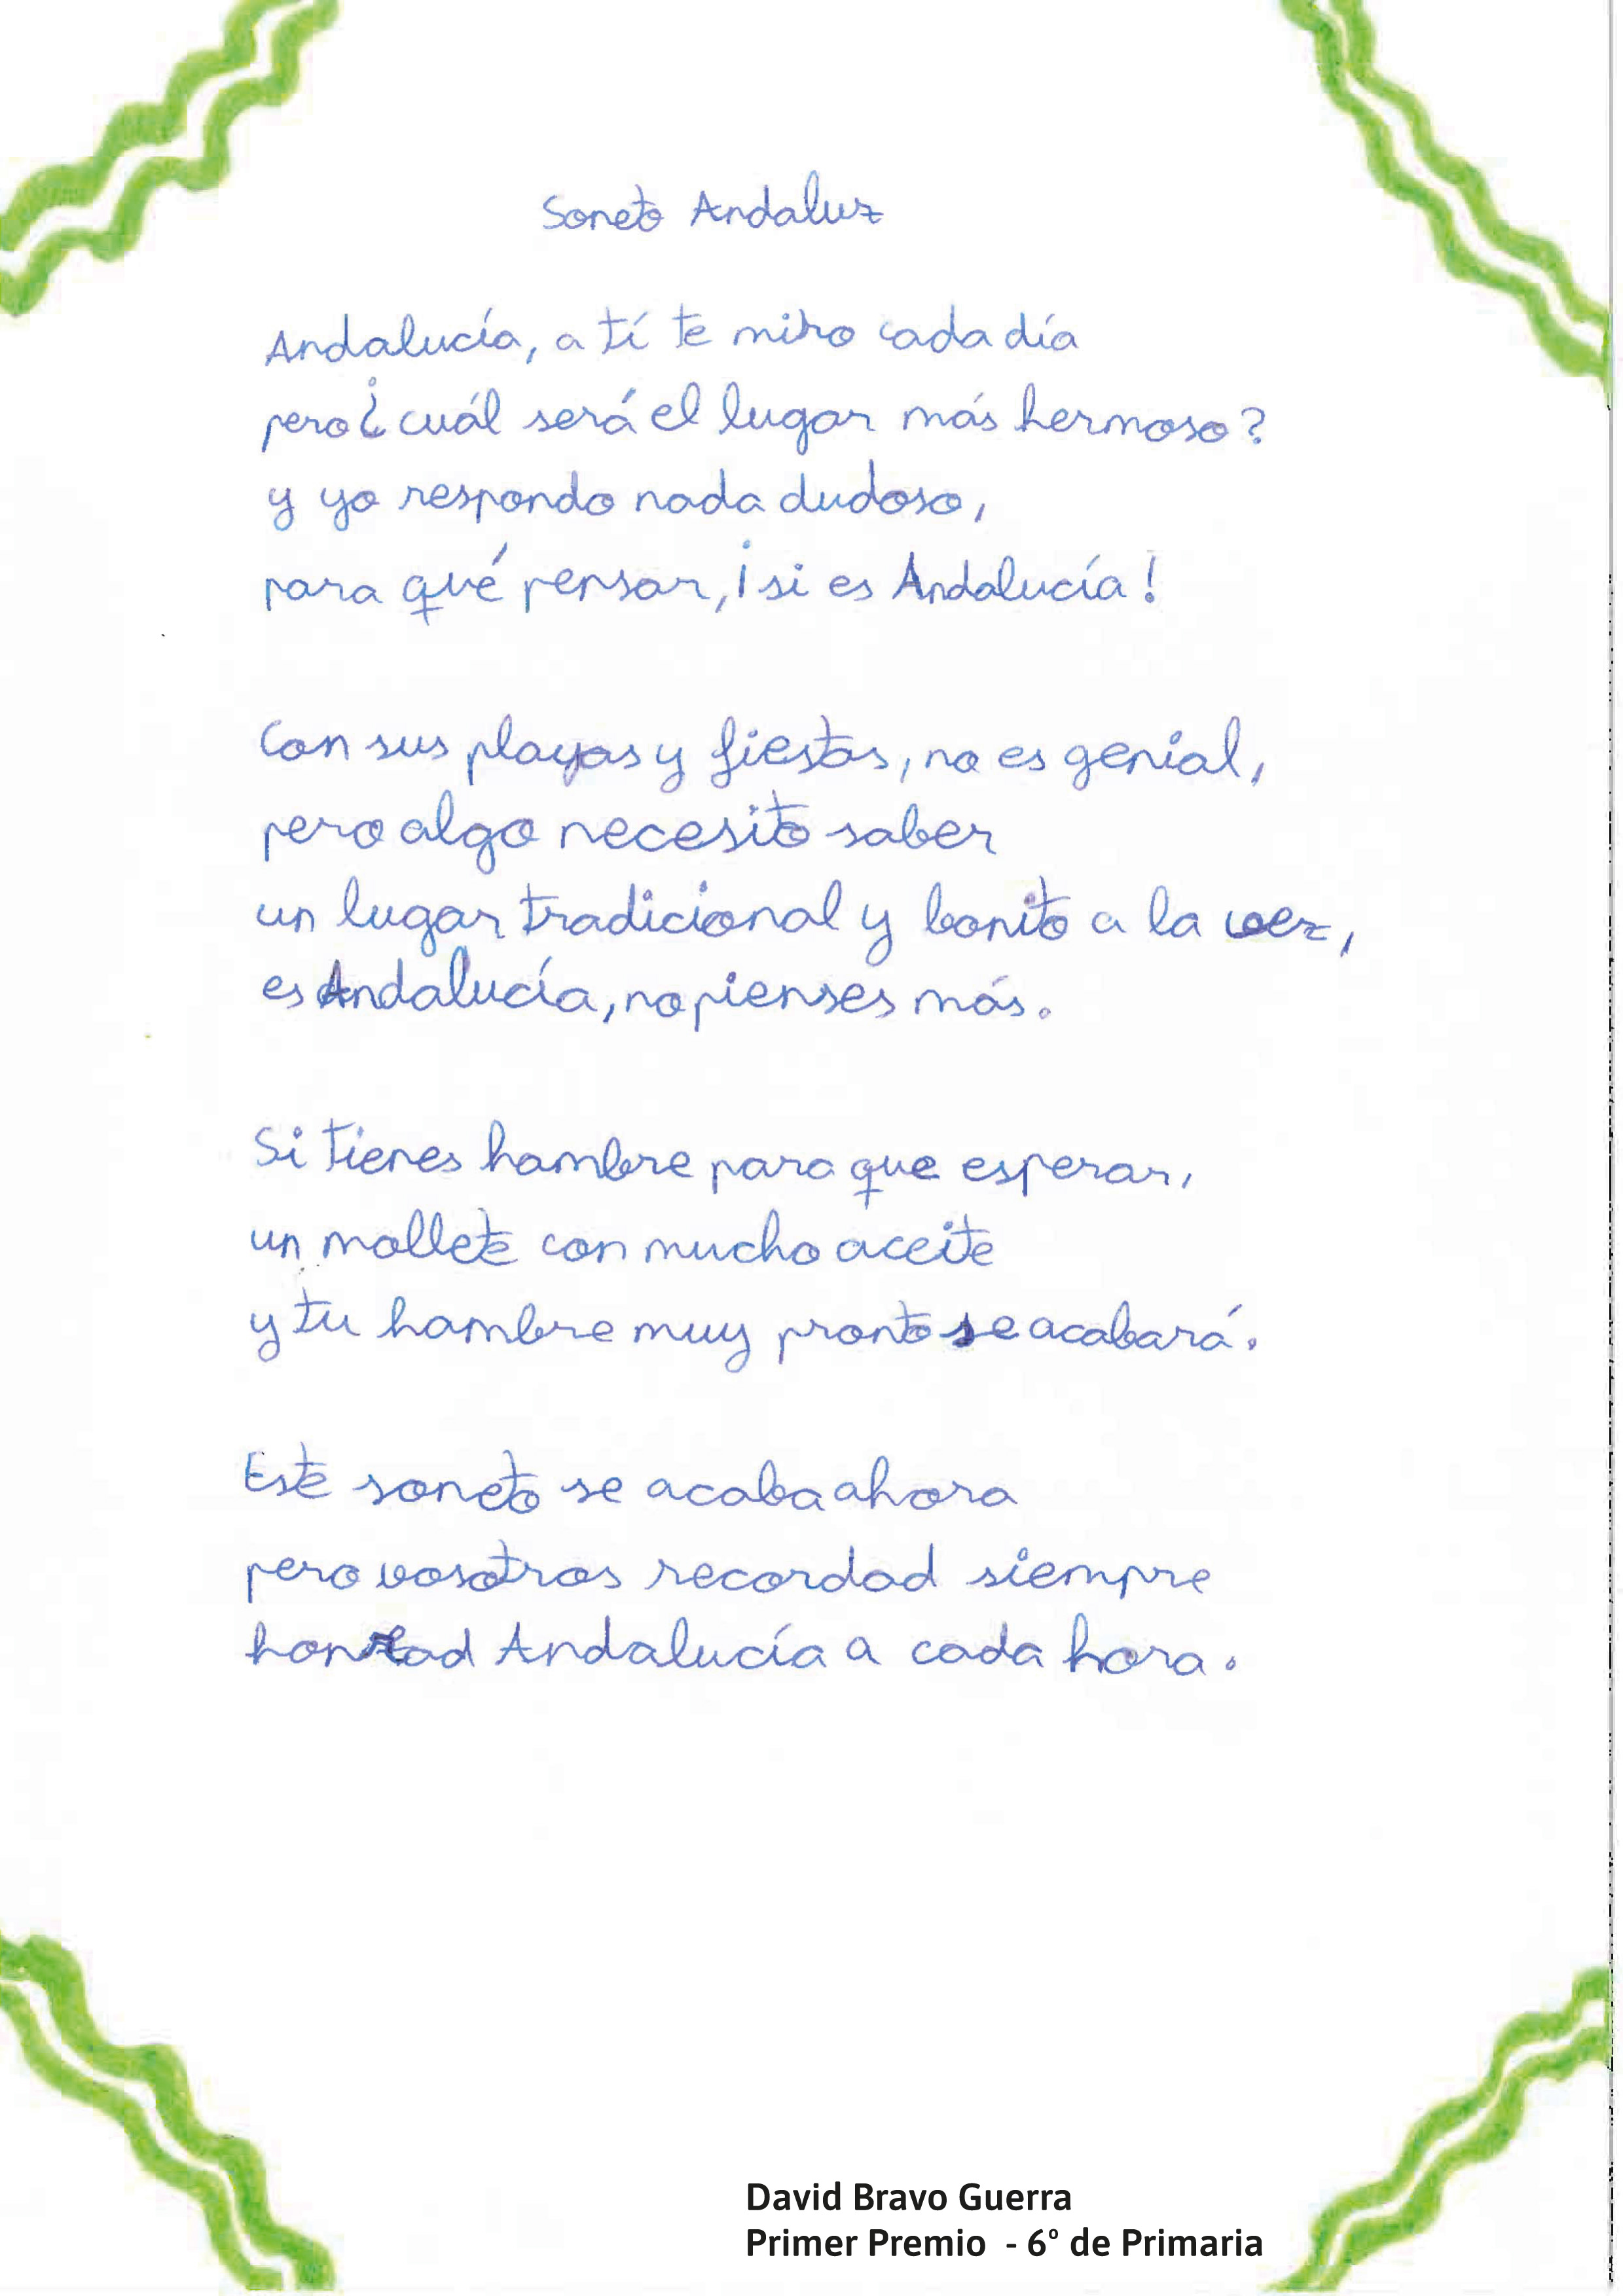 Soneto Andaluz
Andalucía, a tí te miro cada día
pero ¿cuál será el lugar más hermoso?
y yo respondo nada dudoso,
para qué pensar, ¡si es Andalucía!
Con sus playas y fiestas, no es genial,
pero algo necesito saber
un lugar tradicional y bonito a la vez,
es Andalucía, no pienses más.
Si tienes hambre para que esperar,
un mollete con mucho aceite
y tu hambre muy pronto se acabará.
Este soneto se acaba ahora
pero vosotros recordad siempre
honrad Andalucía a cada hora.
David Bravo Guerra
Primer Premio - 6º de Primaria